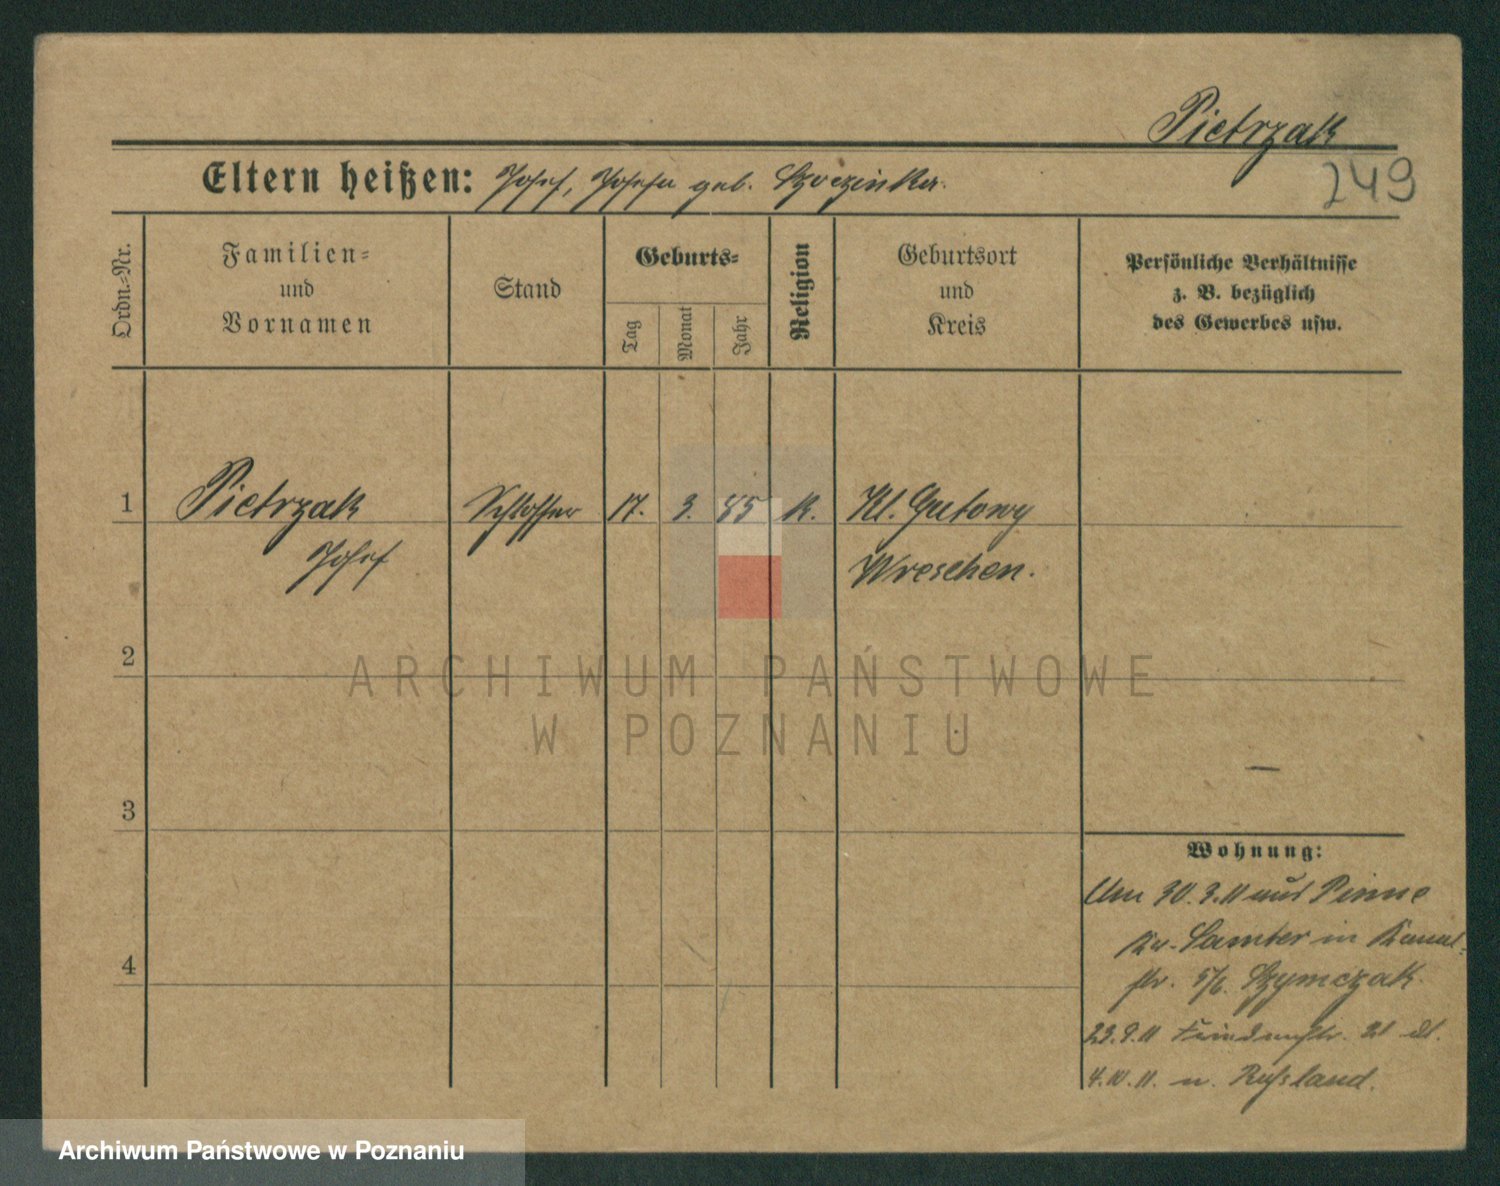 Pietrzak
249
Eltern heißen: Josef, Josefa geb.
Ordn.-Nr.
Familien-
und
Vornamen
Stand
Geburts-
Tag
Monat
Jahr
Religion
Geburtsort
und
Kreis
Persönliche Verhältnisse
z. B. bezüglich
des Gewerbes usw.
1 Pietrzak Schlosser 17. 3. 85 K. Kl. Gutowy
Josef Wreschen.
2
3
4
Wohnung:
Am 30.3.11 aus Pinne
Kr. Samter in Kanal-
str. 5/6. Szymczak.
23.9.11 21
4.10.11. n. Russland.
ARCHIWUM PAŃSTWOWE
W POZNANIU
Archiwum Państwowe w Poznaniu